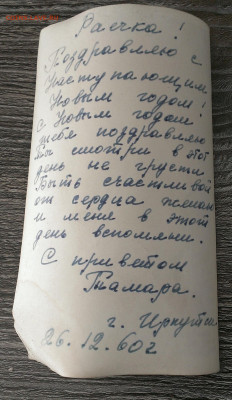 Раечка!
Поздравляю с
Наступающим
Новым годом!
С Новым годом
тебя поздравляю
Ты смотри в этот
день не грусти
Быть счастливой
от сердца желаю
и меня в этот
день вспомяни.
С приветом
Тамара.
г. Иркутск
26.12.60г